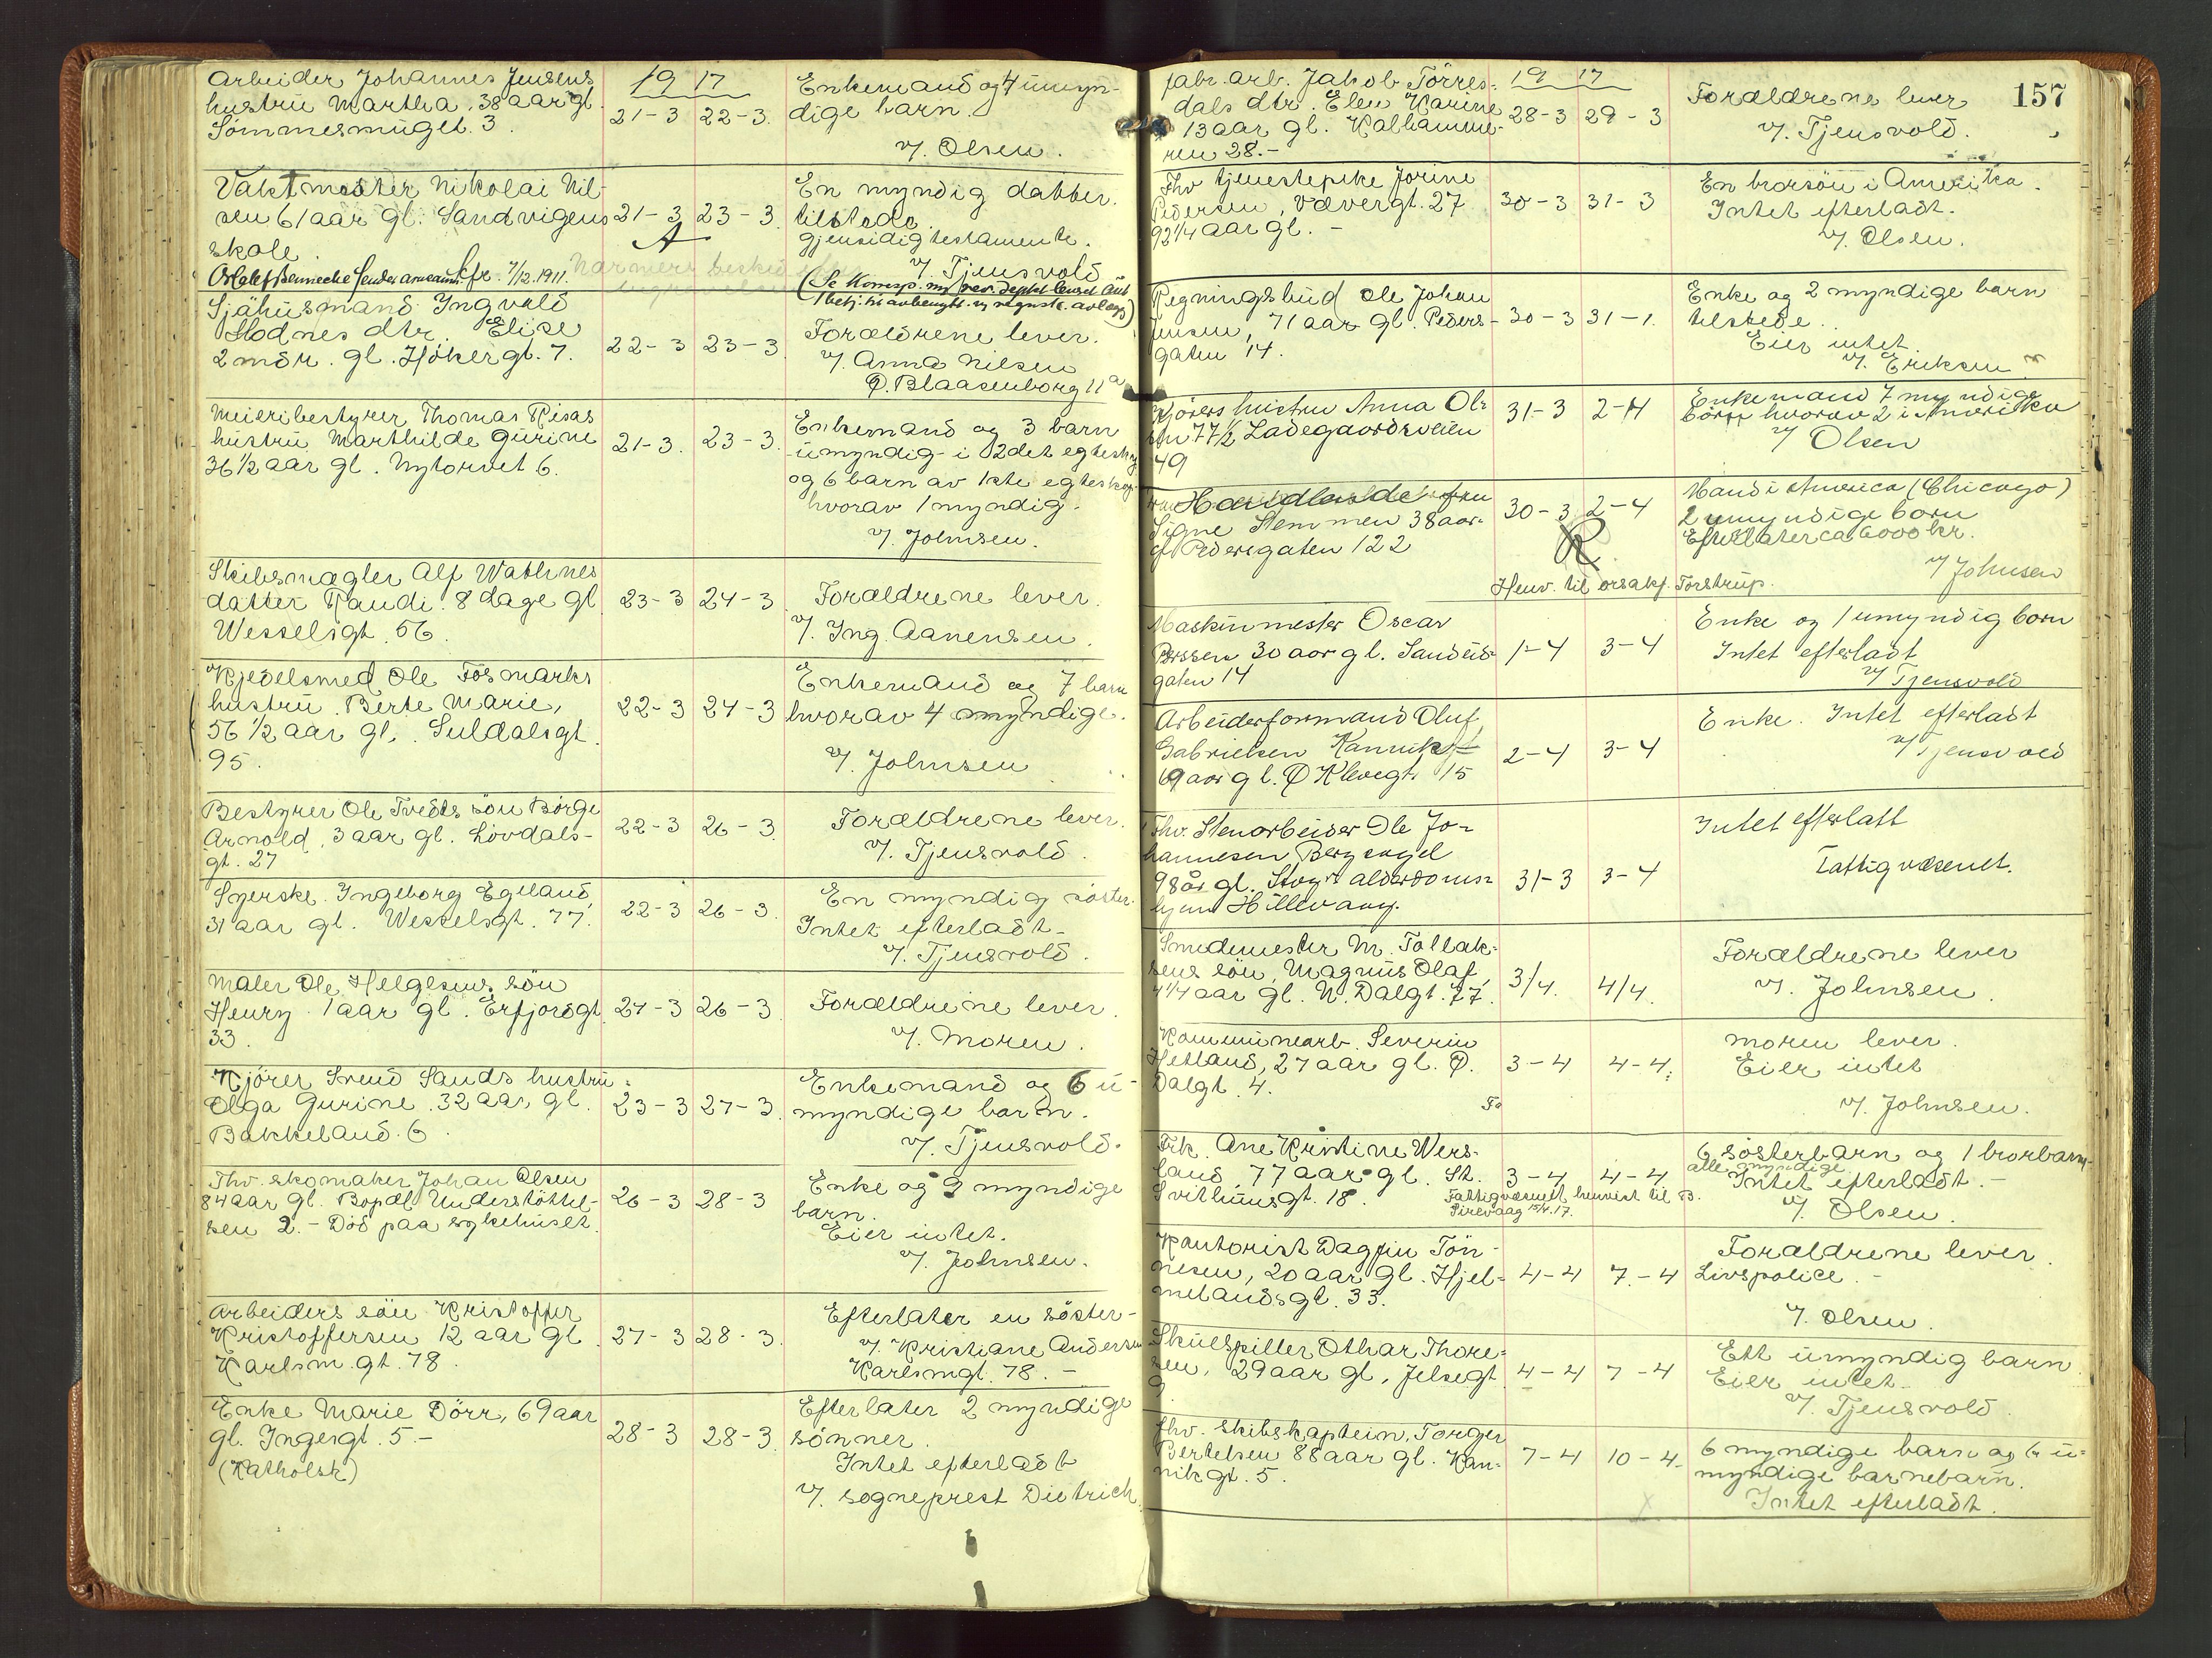 Arbeider Johannes Jensens
hustru Martha, 38 aar gl.
Sømmesmuget. 3.
19 17
21-3 22-3.
Enkemand og 4 umyn-
dige barn.
v/. Olsen.
Vaktmester Nikolai Nil-
sen 61 aar gl. Sandvigens
skole.
21-3 23-3.
En myndig datter.
tilstede.
gjensidig testamente.
v/. Tjensvold
7/12.1911.
Sjøhusmand Ingvald
Hodnes dtr Elise
2 mdr. gl. Høkergt. 7.
22-3 23-3
Forældrene lever.
v/. Anna Nilsen
Ø. Blaasenborg 11a
Meieribestyrer Thomas Risas
hustru Marthilde Gurine
36 1/2 aar gl. Nytorvet 6.
21-3. 23-3.
Enkemand og 3 barn
umyndig i 2det egtesk.
og 6 barn av 1ste egteskap
hvorav 1 myndig.
v/. Johnsen.
Skibsmægler Alf Wathnes
datter Randi. 8 dage gl
Wesselsgt. 56.
23-3 24-3.
Forældrene lever.
v/. Ing. Aanensen.
Kjedelsmed Ole Fosmarks
hustru Berte Marie,
56 1/2 aar gl. Suldalsgt.
95.
22-3 24-3
Enkemand og 7 barn
hvorav 4 myndige.
v/. Johnsen
Bestyrer Ole Tvedts søn Børge
Arnold, 3 aar gl. Løvdals-
gt. 27
22-3 26-3.
Forældrene lever.
v/. Tjensvold.
Syerske Ingeborg Egeland,
31 aar gl. Wesselsgt. 77.
22-3 26-3.
En myndig søster.
Intet efterladt-
v/. Tjensvold.
Maler Ole Helgesens søn
Henry 1 aar gl. Erfjordgt.
33.
24-3 26-3
Forældrene lever.
v/. Moren.
Kjører Svend Sands hustru
Olga Gurine. 32 aar gl.
Bakkeland. 6.
23-3 27-3.
Enkemand og 6 u-
myndige barn.
v/. Tjensvold.
Fhv. skomaker Johan Olsen
84 aar gl. Bopæl Understøttel-
sen 2. - Død paa sykehuset.
26-3 28-3
Enke og 2 myndige
barn.
Eier intet.
v/. Johnsen.
Arbeiders søn Kristoffer
Kristoffersen 12 aar gl
Karlsm. gt. 78.
27-3 28-3.
Efterlater en søster-
v/. Kristiane Andersen
Karlsmgt. 78. -
Enke Marie Dörr, 69 aar
gl. Ingersgt. 5.-
(Katholsk)
28-3 28-3.
Efterlater 2 myndige
sønner.
Intet efterladt
v/. sogneprest Dietrich
157
Fabr. arb. Jakob Tørres-
dals dtr. Elen Karine
13 aar gl. Kalhamme-
ren 28.-
19 17
28-3 29-3
Forældrene lever
v/. Tjensvold.
Fhv tjenestepike Jorine
Pedersen, Vævergt. 27
92 1/4 aar gl. -
30-3 31-3
En brorsøn i Amerika.
Intet efterladt.
v/. Olsen.
Regningsbud Ole Johan
Jensen, 71 aar gl. Peders-
gaten 14.
30-3 31-1.
Enke og 2 myndige barn
tilstede.
Eier intet.
v/. Eriksen
Kjørers hustru Anna Ol-
sen 77 1/2 Ladegaardsveien
49
31-3 2-4
Enkemand 7 myndige
børn hvorav 2 i Amerika
v/ Olsen
Handlende fru
Signe Stemmen 38 aar
gl Pedersgaten 122
30-3 2-4
R
Mand i America (Chicago)
2 umyndige børn
Efterlater ca 6000 kr.
v/ Johnsen
Henv. til orsakf. Torstrup.
Maskinmester Oscar
Persson 30 aar gl. Sandeid-
gaten 14
1-4 3-4
Enke og 1 umyndig born
Intet efterladt
v/ Tjensvold
Arbeiderformand Oluf
Gabrielsen Kannik
69 aar gl. Ø Klevegt. 15
2-4 3-4
Enke. Intet efterladt
v/ Tjensvold
Fhv. Stenarbeider Ole Jo-
hannesen Bergsagel
98 år gl. Stvgr alderdoms-
hjem Hillevaag.
31-3 3-4
Intet efterlatt
Fattigvæsenet.
Smedemester M. Tollak-
sens søn, Magnus Olaf,
4 1/4 aar gl. N. Dalgt. 77.
3/4. 4/4.
Forældrene lever
v/. Johnsen.
Kommunearb. Severin
Hetland, 27 aar gl. Ø.
Dalgt. 4.
3-4 4-4.
Fa
moren lever.
Eier intet
v/. Johnsen.
Frk. Ane Kristine Wers-
land, 77 aar gl. St.
Svithunsgt. 18.
3-4 4-4
Fattigvæsenet henvist til B.
Sirevaag 15/4.17.
6 søsterbarn og 1 brorbarn-
alle myndige
Intet efterladt. -
v/. Olsen.
Kontorist Dagfin Tøn-
nesen, 20 aar gl. Hjel-
melandsgt. 33.
4-4 7.-4
Forældrene lever.
Livspolice. -
v/. Olsen.
Skuespiller Othar Thore-
sen, 29 aar gl, Jelsegt
9.
4-4 7-4
Ett umyndig barn
Eier intet
v/. Tjensvold.
fhv. skibskaptein, Torger
Bertelsen 88 aar gl. Kan-
nikgt. 5.
7-4 10-4.
6 myndige barn og 6 u-
myndige barnebarn.
Intet efterladt.